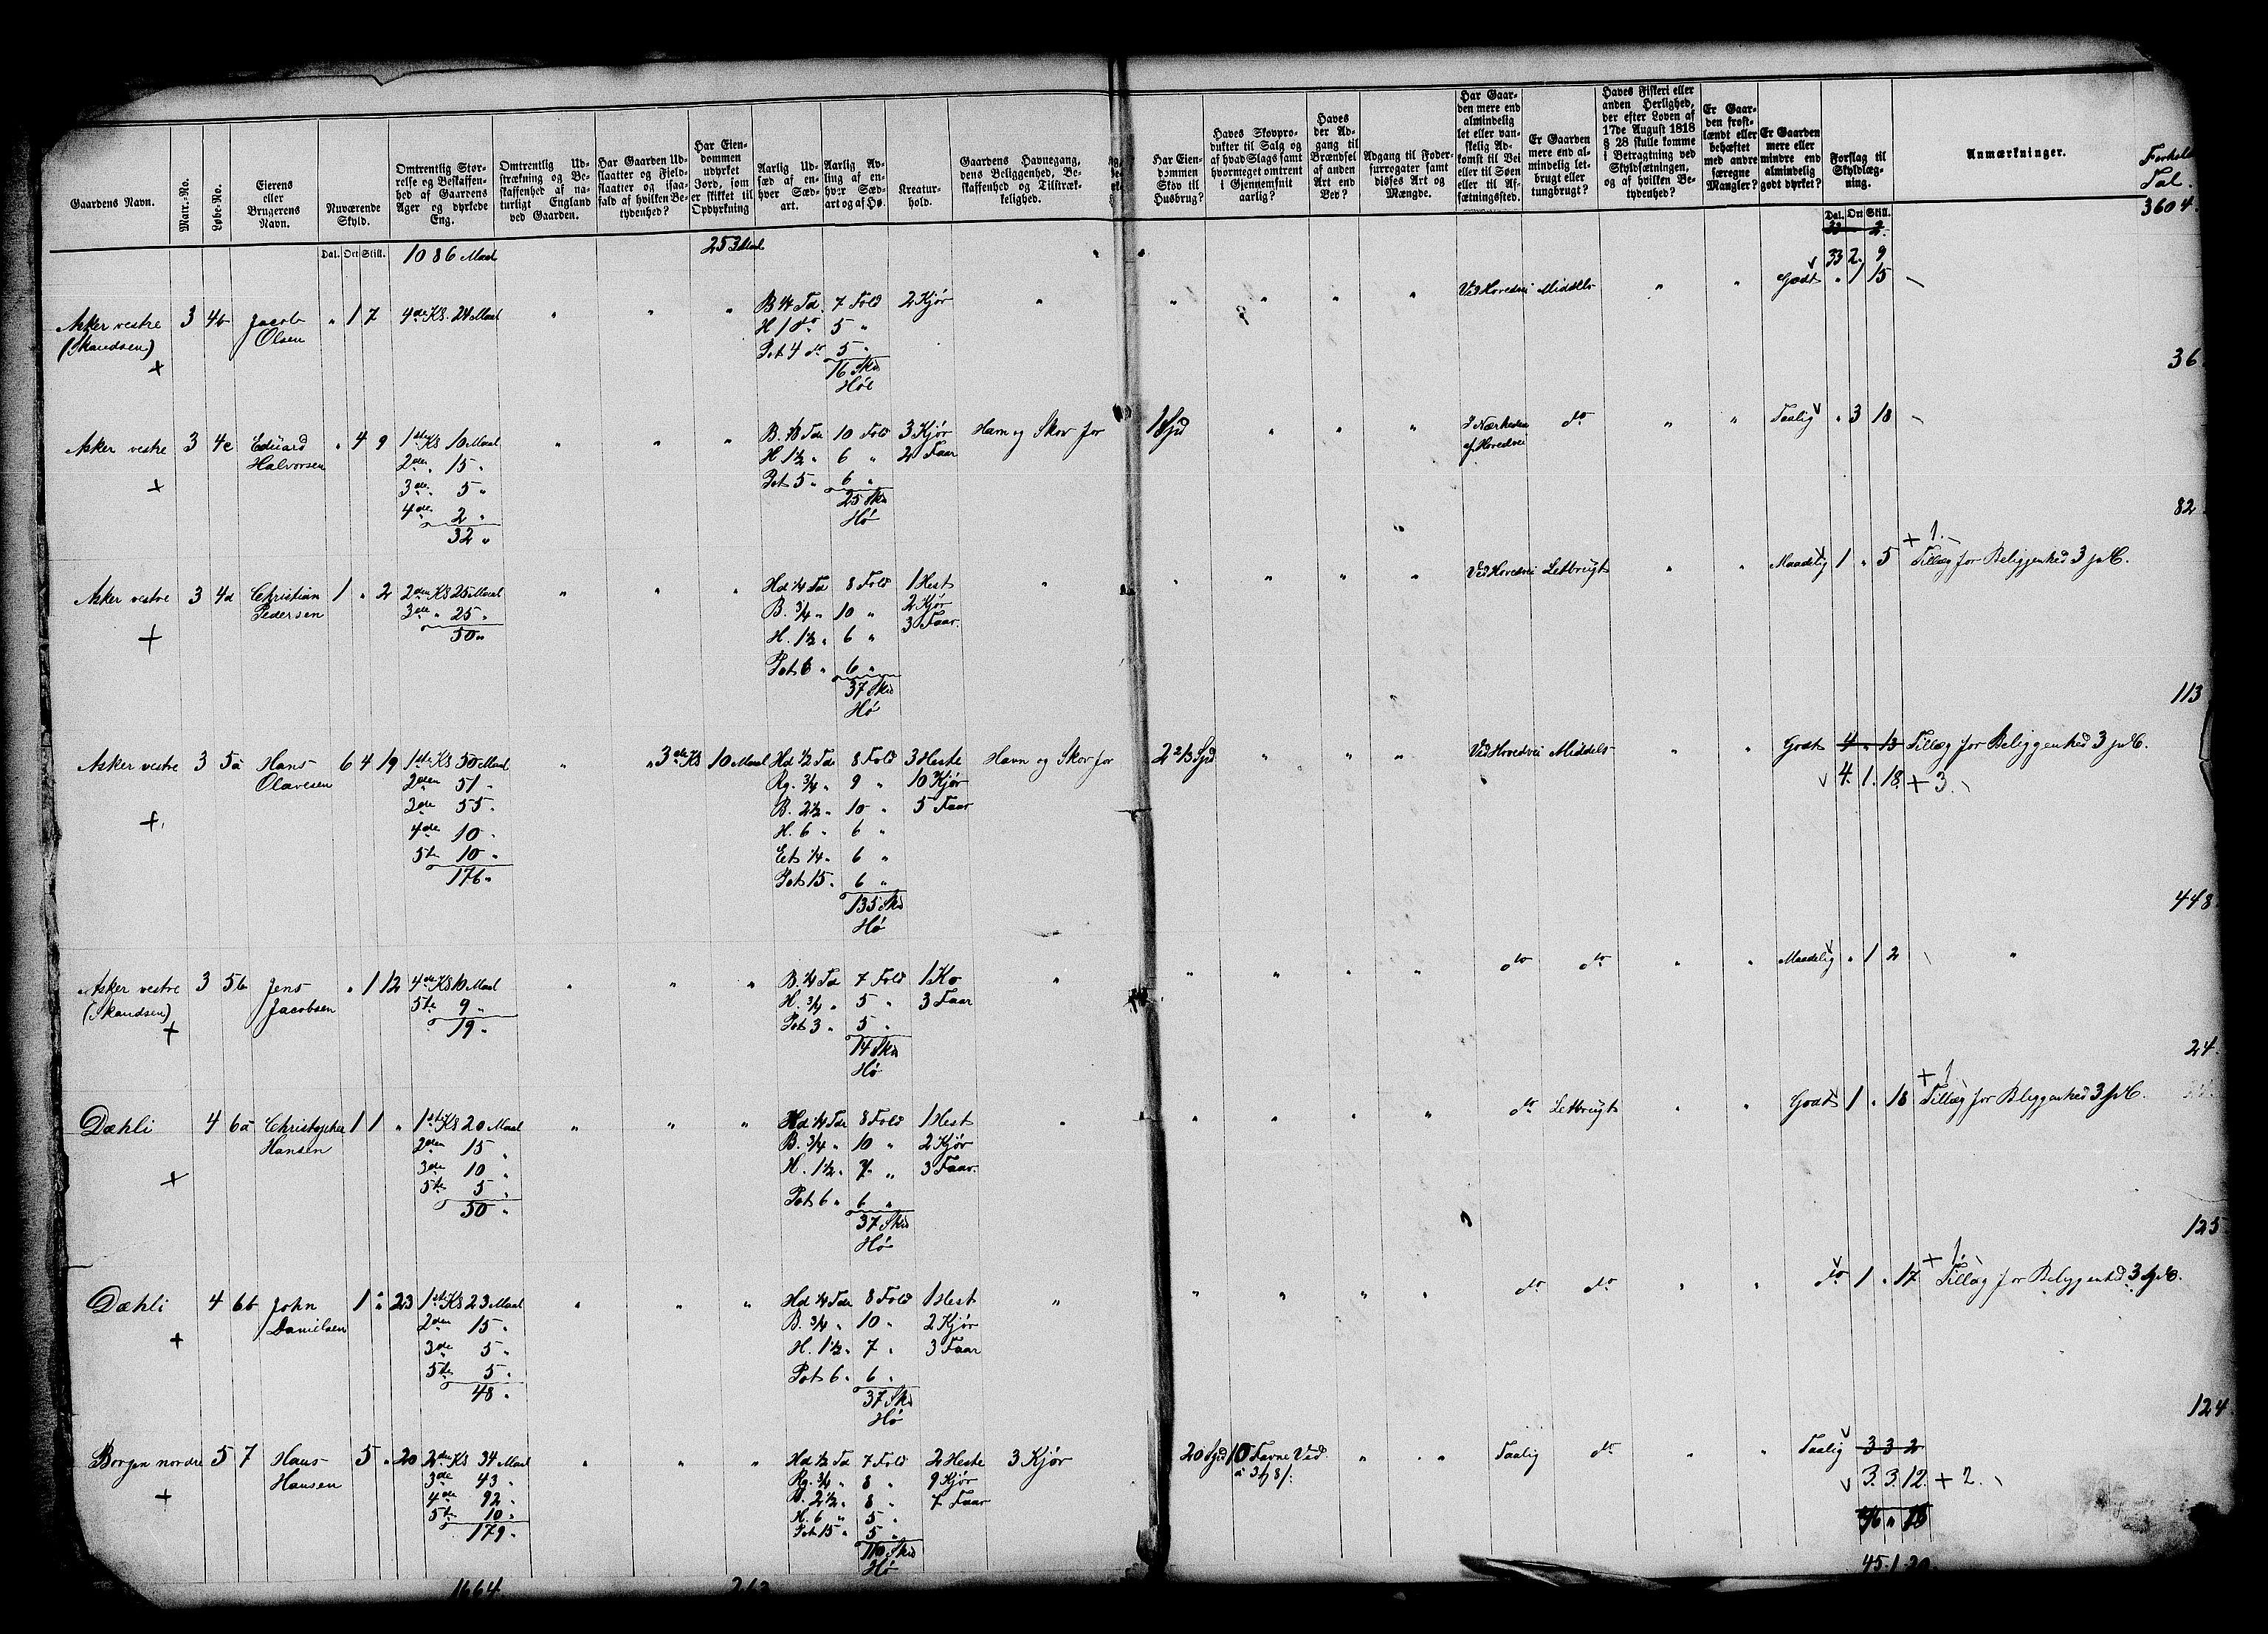 Gaardens Navn.
Matr.-No.
Løbe-No.
Eierens eller Brugerens Navn.
Nuværende Skyld.
Omtrentlig Størrelse og Beskaffenhed af Gaardens Ager og dyrkede Eng.
Omtrentlig Udstrækning og Beskaffenhed af naturligt England ved Gaarden.
Har Gaarden Udslaatter og Fjeldslaatter og isaafald af hvilken Betydenhed?
Har Eiendommen udyrket Jord, som er skikket til Opdyrkning
Aarlig Udsæd af enhver Sædart.
Aarlig Avling af enhver Sædart og af Hø.
Kreaturhold.
Gaardens Havnegang, dens Beliggenhed, Beskaffenhed og Tilstrækkelighed.
Har Eiendommen Skov til Husbrug?
Haves Skovprodukter til Salg og af hvad Slags samt hvormeget omtrent i Gjennemsnit aarlig?
Haves der Adgang til Brændsel af anden Art end Ved?
Adgang til Foder-surrogater samt disses Art og Mængde.
Har Gaarden mere end almindelig let eller vanskelig Adkomst til Vei eller til Søen eller til Afsætningssted.
Er Gaarden mere end almindelig letbrugt eller tungbrugt?
Haves Fiskeri eller anden Herlighed, der efter Loven af 17de August 1818 § 28 skulle komme i Betragtning ved Skyldsætningen, og af hvilken Betydenhed?
Er Gaarden frostlændt eller behæftet med andre særegne Mangler?
Er Gaarden mere eller mindre end almindelig godt dyrket?
Forslag til Skyldlægning.
Anmærkninger.
Forholds Tal.
Dal. Ort Skill. 1086 Maal 253 Maal Dal. Ort Skill. 33 2. 9 3604.
Asker vestre 3 4b Jacob " 1 7 4de Kl. 24 Maal " " " B 1/4 Td. 7 Fold 2 Kjør " " " " " Ved Hovedvei Middels " " Godt " 1 15
(Skaudsen) Olsen H 1 do 5 "
+ Pot 4 do 5 "
16 Skd
Høe 36.
Asker vestre 3 4c Eduard " 4 9 1ste Kl 10 Maal " " " B. 3/8 Tdr 10 Fold 3 Kjør Havn og Skov for 1 Spd " " " I Nærheden do " " Taalig " 3 18
Halvorsen 2den 15 " H 1 1/2 " 6 " 2 Faar af Hovedvei
+ 3de 5 " Pot 5 " 6 "
4de 2 " 25 Skd
32 " Hø 82
Asker vestre 3 4d Christian 1 " 2 2den Kl 25 Maal " " " Hd 1/4 Td 8 Fold 1 Hest " " " " " Ved Hovedvei Letbrugt " " Maadelig 1 " 5 + 1. Tillæg for Beliggenhed 3 pCt.
Pedersen 3de " 25 " B. 3/4 " 10 " 2 Kjør
+ 50 " H. 1 1/2 " 6 " 3 Faar.
Pot 6 " 6 "
37 Skd
Hø 113
Asker vestre 3 5a Hans 6 4 19 1ste Kl 50 Maal " " 3de Kl 10 Maal Hd 1/2 Td 8 Fold 3 Heste Havn og Skov for 2 2/3 Spd " " " Ved Hovedvei Middels " " Godt 4 " 13 Tillæg for Beliggenhed 3 pCt.
Olavesen 2den 51 " Rg. 3/4 " 9 " 10 Kjør 4. 1. 18. + 3.
3de 55 " B. 2 1/2 " 10 " 5 Faar
+ 4de 10 " H. 6 " 6 "
5te 10 " Ert 1/4 " 6 "
176 " Pot 15 " 6 "
135 Skd
Hø 448.
Asker vestre 3 5b Jens " 1 12 4de Kl 10 Maal " " " B. 1/4 Td 7 Fold 1 Ko " " " " " do do " " Maadelig " 1 2 "
(Skaudsen) Jacobsen 5te 9 " H. 3/4 " 5 " 3 Faar
+ 19 " Pot 3 " 5 "
14 Skd
Hø 24.
Dæhli 4 6a Christopher 1 1 " 1ste Kl 20 Maal " " " Hd 1/4 Tdr 8 Fold 1 Hest " " " " " do Letbrugt " " Godt 1 " 18 + 1 Tillæg for Beliggenhed 3 pCt.
Hansen 2den 15 " B. 3/4 " 10 " 2 Kjør
+ 3de 10 " H. 1 1/2 " 7 " 3 Faar.
5te 5 " Pot 6 " 6 "
50 " 37 Skd
Hø 125
Dæhli 4 6b John 1 " 23 1ste Kl 23 Maal " " " Hd 1/4 Tdr 8 Fold 1 Hest " " " " " do do " " do 1 " 17 + 1 Tillæg for Beliggenhed 3 pCt.
Danielsen 2den 15 " B. 3/4 " 10 " 2 Kjør
+ 3de 5 " H. 1 1/2 " 7 " 3 Faar
5te 5 " Pot 6 " 6 "
48 " 37 Skd
Hø 124.
Borgen nordre 5 7 Hans 5 " 20 2den Kl 34 Maal " " " Hd 1/2 Td 7 Fold 2 Heste 3 Kjør 20 Spd 10 Favne Ved " " Taalig do " " Taalig 3 3 2
Hansen 3de 43 " Rg. 3/4 " 8 " 9 Kjør 3. 3. 12. + 2.
+ 4de 92 " B. 2 1/2 " 8 " 7 Faar
5te 10 " H. 6 " 5 "
179 " Pot 15 " 5 "
110 Skd
Hø
1664 263 45. 1. 20.